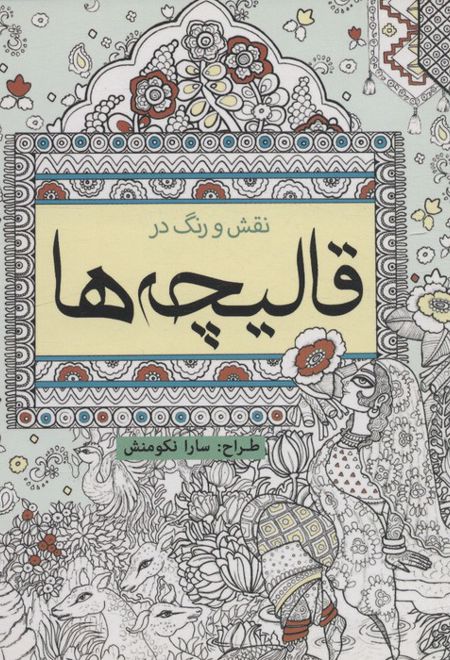 نقش و رنگ در
قالیچه‌ها
طراح: سارا نکومنش